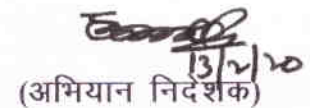 13/2/20
(अभियान निदेशक)